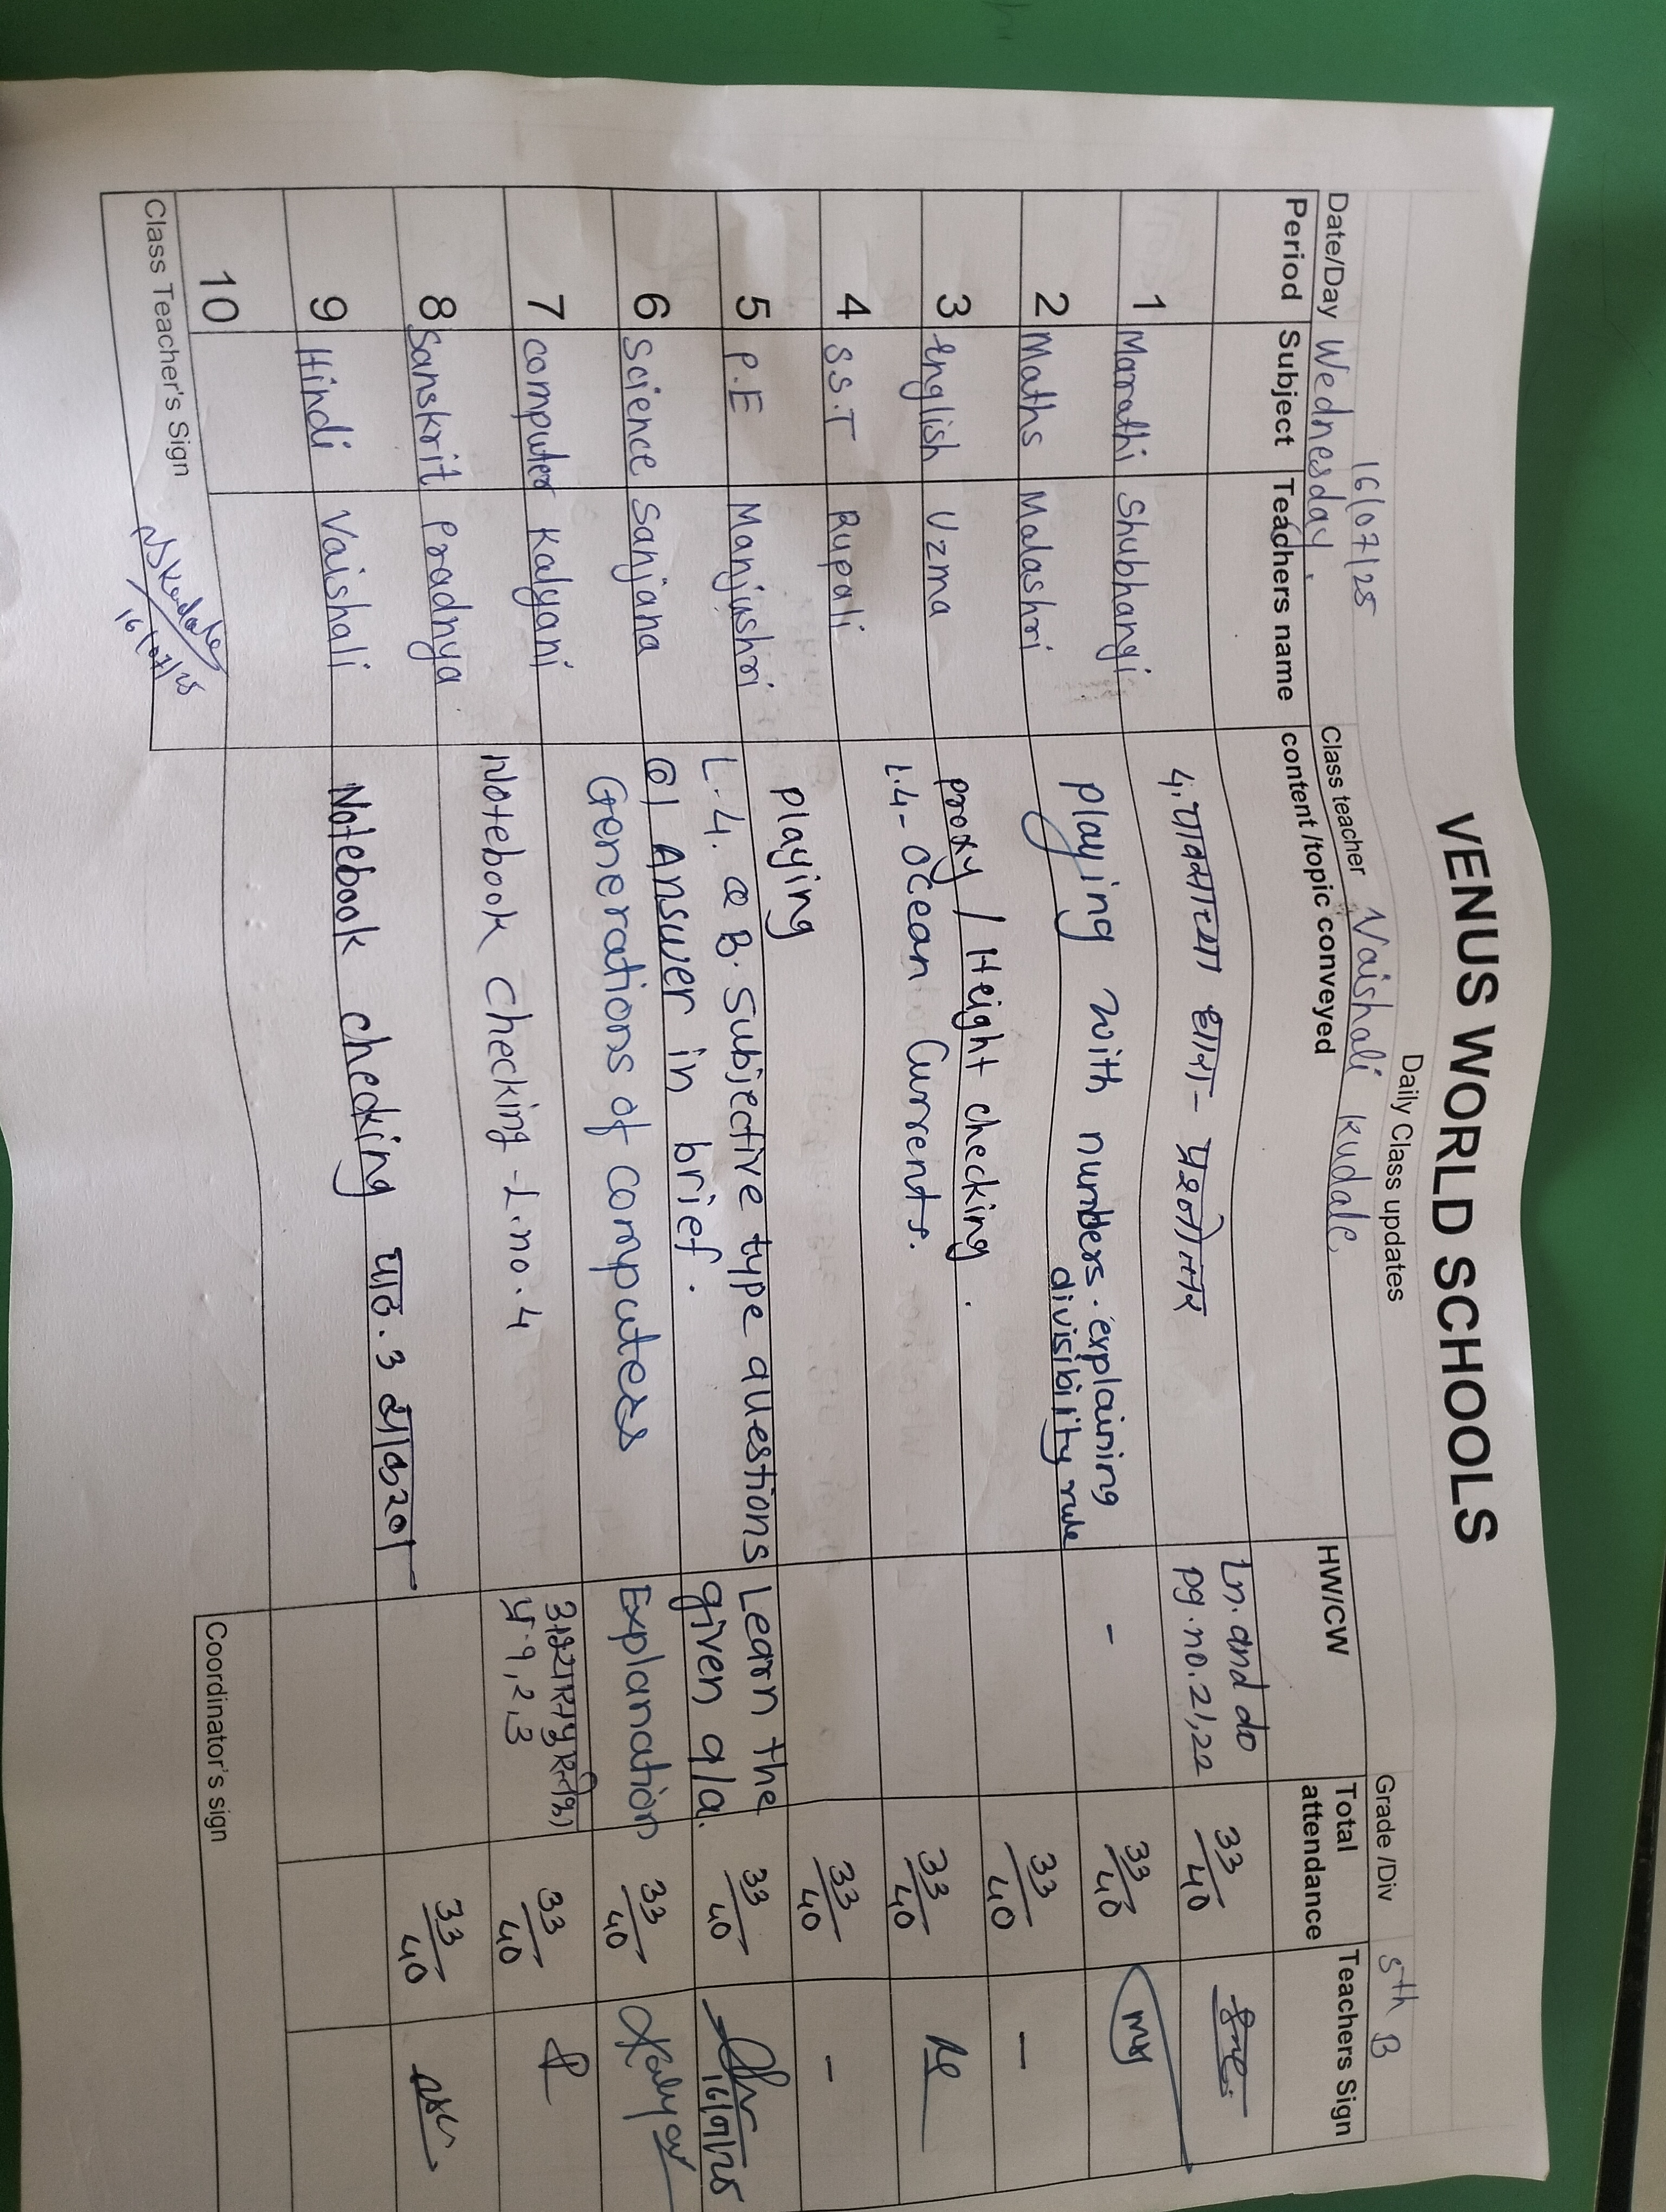 VENUS WORLD SCHOOLS
Daily Class updates
Date/Day Wednesday 16/07/25 Class teacher Vaishali kudale Grade /Div 5th B
Period Subject Teachers name content /topic conveyed HW/CW Total attendance Teachers Sign
1 Marathi Shubhangi 4. पावसाच्या धारा - प्रश्नोत्तर Ln. and do 33/40
pg. no. 21,22
2 Maths Malashri playing with numbers. explaining - 33/40
divisibility rule
3 English Uzma proxy / Height checking. 33/40 -
4 S.S.T Rupali L.4- Ocean Currents. 33/40
5 P.E Manjushri playing 33/40 -
6 Science Sanjana L.4. B. Subjective type questions Learn the 33/40
Answer in brief. given q/a. 16/07/25
7 computer Kalyani Generations of computers Explanation 33/40
8 Sanskrit Pradnya Notebook checking - L.no. 4 33/40
प्र. १, २, ३
9 Hindi Vaishali Notebook checking पाठ. 3 व्याकरण 33/40
10
Class Teacher's Sign 16/07/25 Coordinator's sign